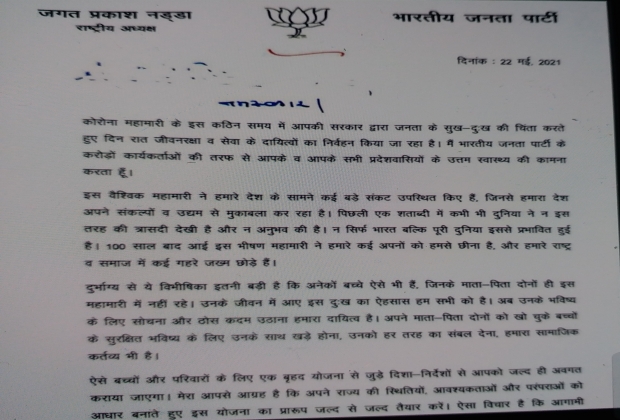 जगत प्रकाश नड्डा
राष्ट्रीय अध्यक्ष
भारतीय जनता पार्टी
दिनांक : 22 मई, 2021
कोरोना महामारी के इस कठिन समय में आपकी सरकार द्वारा जनता के सुख-दुःख की चिंता करते
हुए दिन रात जीवनरक्षा व सेवा के दायित्वों का निर्वहन किया जा रहा है। मैं भारतीय जनता पार्टी के
करोडों कार्यकर्ताओं की तरफ से आपके व आपके सभी प्रदेशवासियों के उत्तम स्वास्थ्य की कामना
करता हूँ।
इस वैश्विक महामारी ने हमारे देश के सामने कई बड़े संकट उपस्थित किए हैं, जिनसे हमारा देश
अपने संकल्पों व उद्यम से मुकाबला कर रहा है। पिछली एक शताब्दी में कभी भी दुनिया ने न इस
तरह की त्रासदी देखी है और न अनुभव की है। न सिर्फ भारत बल्कि पूरी दुनिया इससे प्रभावित हुई
है। 100 साल बाद आई इस भीषण महामारी ने हमारे कई अपनों को हमसे छीना है, और हमारे राष्ट्र
व समाज में कई गहरे जख्म छोड़े हैं।
दुर्भाग्य से ये विभीषिका इतनी बड़ी है कि अनेकों बच्चे ऐसे भी हैं, जिनके माता-पिता दोनों ही इस
महामारी में नहीं रहे। उनके जीवन में आए इस दुःख का ऐहसास हम सभी को है। अब उनके भविष्य
के लिए सोचना और ठोस कदम उठाना हमारा दायित्व है। अपने माता-पिता दोनों को खो चुके बच्चों
के सुरक्षित भविष्य के लिए उनके साथ खड़े होना, उनको हर तरह का संबल देना, हमारा सामाजिक
कर्तव्य भी है।
ऐसे बच्चों और परिवारों के लिए एक बृहद योजना से जुड़े दिशा-निर्देशों से आपको जल्द ही अवगत
कराया जाएगा। मेरा आपसे आग्रह है कि अपने राज्य की स्थितियों, आवश्यकताओं और परंपराओं को
आधार बनाते हुए इस योजना का प्रारूप जल्द से जल्द तैयार करें। ऐसा विचार है कि आगामी